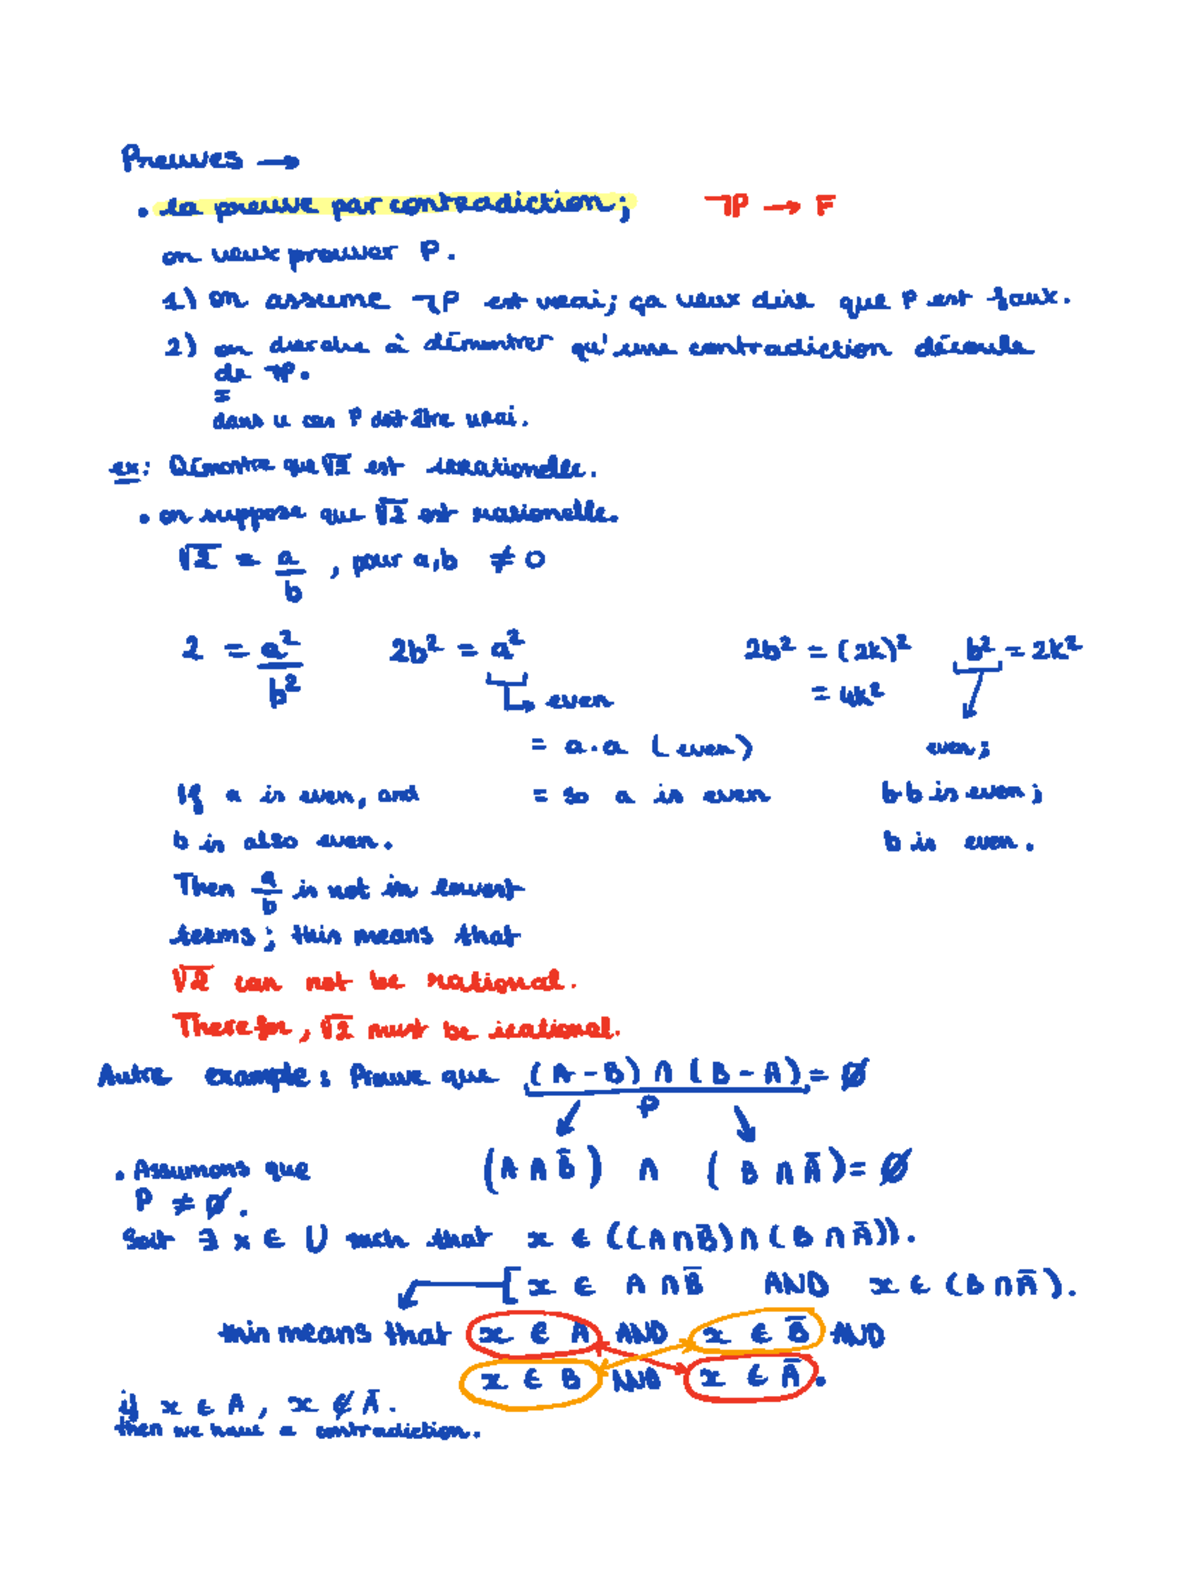 Preuves →
• la preuve par contradiction; ¬P → F
on veux prouver P.
1) on assume ¬P est vrai; ça veux dire que P est faux.
2) on cherche à démontrer qu'une contradiction découle
de ¬P.
=
dans ce cas P doit être vrai.
ex: Démontre que √2 est irrationelle.
• on suppose que √2 est rationelle.
√2 = a/b , pour a,b ≠ 0
2 = a²/b² 2b² = a² 2b² = (2k)² b² = 2k²
↳ even = 4k²
= a·a (even) even;
If a is even, and = so a is even b b is even;
b is also even. b is even.
Then a/b is not in lowest
terms; this means that
√2 can not be rational.
Therefor, √2 must be irational.
Autre example: Prouve que (A - B) ∩ (B - A) = ∅
P
• Assumons que (A ∩ B̄) ∩ (B ∩ Ā) = ∅
P ≠ ∅.
Soit ∃ x ∈ U such that x ∈ ((A ∩ B̄) ∩ (B ∩ Ā)).
[x ∈ A ∩ B̄ AND x ∈ (B ∩ Ā).
this means that x ∈ A AND x ∈ B̄ AND
x ∈ B AND x ∈ Ā.
if x ∈ A, x ∉ Ā.
then we have a contradiction.